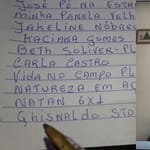 José Pé na Esta
Minha Panela Velh
Jakeline Nóbreg
Kaciana Gomes
Beth Soliver-PL
Carla Castro
Vida no Campo PL
Natureza em Aç
Natan 6x1
Ghisnaldo STD